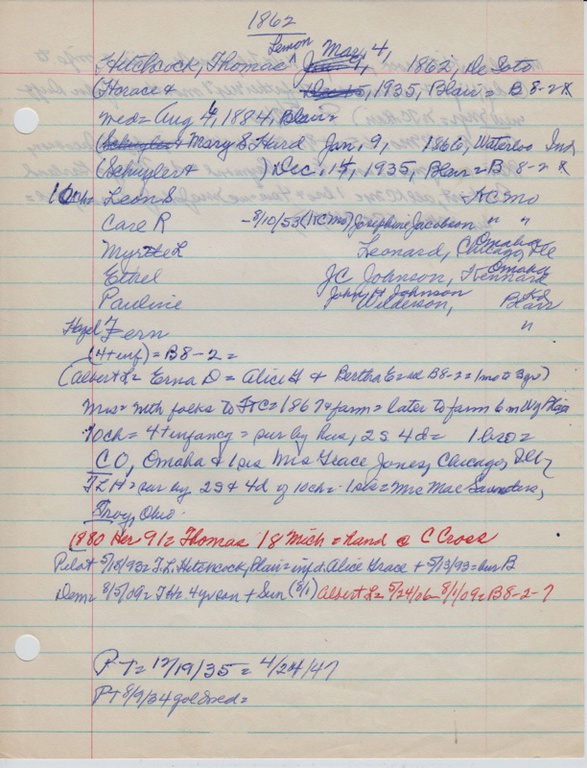 1862
Lemon May 4,
Hitchcock, Thomas ^ Jan 9, 1862, De Soto
(Horace & Dec 15, 1935, Blair = B 8-2 X
med = Aug 4, 1884, Blair =
(Schuyler & Mary S. Hard Jan, 9, 1866, Waterloo Ind
(Schuyler & (Dec, 14, 1935, Blair = B 8-2 X
10 ch = Leon S KC Mo
Care R - 8/10/53 (KC Mo) Josephine Jacobson " "
Myrtle L Leonard, Chicago, Ill Omaha
Ethel JC Johnson, Kennard Omaha
Pauline John H Johnson Wilderson, Blair
Hazel Fern "
(4 + inf) = B8-2 =
(Albert L = Erna D = Alice G & Bertha E = all B8-2 = 1 mo to 3 yr)
Mrs = with folks to = 1867 & farm = later to farm 6 m
10 ch = 4 + infancy = sur by hus, 2 S. 4 d = 1 bro =
C O, Omaha & 1 sis Mrs Grace Jones, Chicago, Ill
T L H = sur by 2 S & 4 d of 10 ch = 1 sis = Mrs Mae Saunders,
Troy, Ohio.
1880 Her 912 Thomas 18 Mich = hand @ C Cross
Pilot 5/18/93 = T.L. Hitchcock, Blair = inf d. Alice Grace + 5/13/93 = bur B
Dem = 8/5/09 = TH = 4 yr son + Sun (8/1) Albert L = 5/24/06 - 8/1/09 = B8-2-7
P T = 12/19/35 = 4/24/47
P T 8/9/34 gold wed =